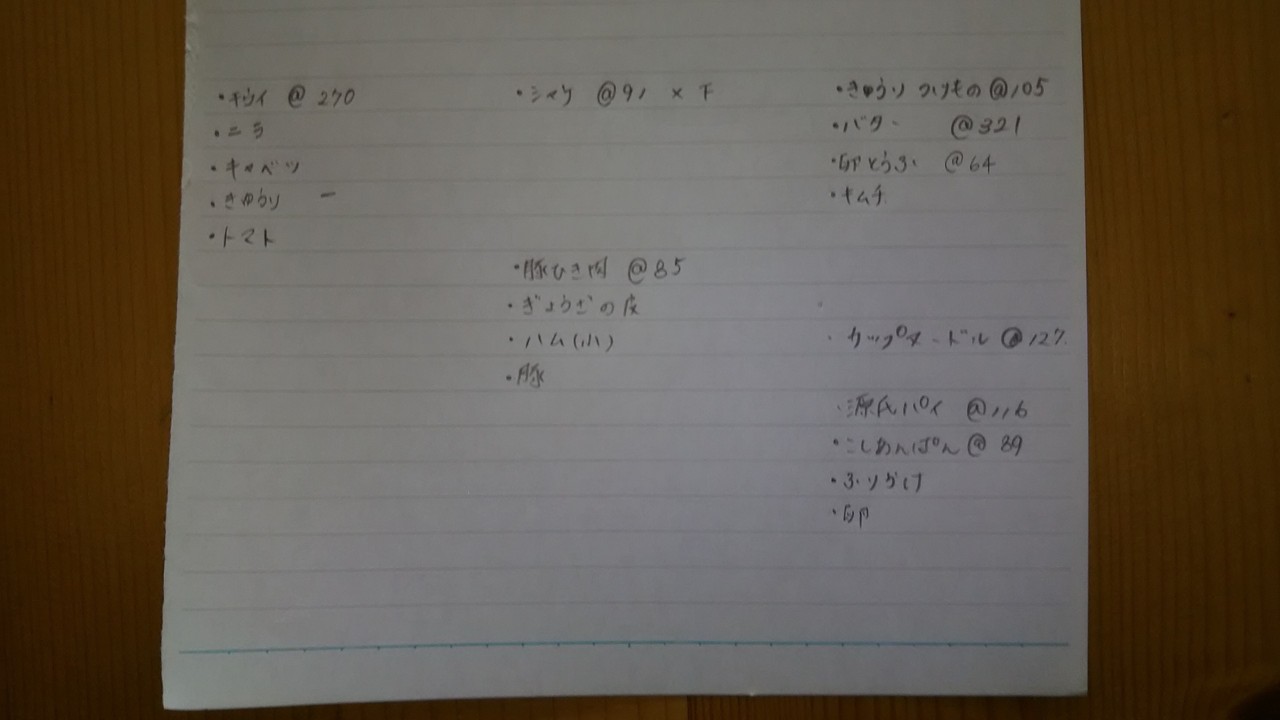 ・キウイ @ 270
・ニラ
・キャベツ
・きゅうり ー
・トマト
・シャケ @91 ×
・豚ひき肉 @85
・ぎょうざの皮
・ハム(小)
・豚
・きゅうり つけもの @105
・バター @321
・卵とうふ @64
・キムチ
・カップヌードル @127
・源氏パイ @116
・こしあんぱん @ 89
・ふりかけ
・卵